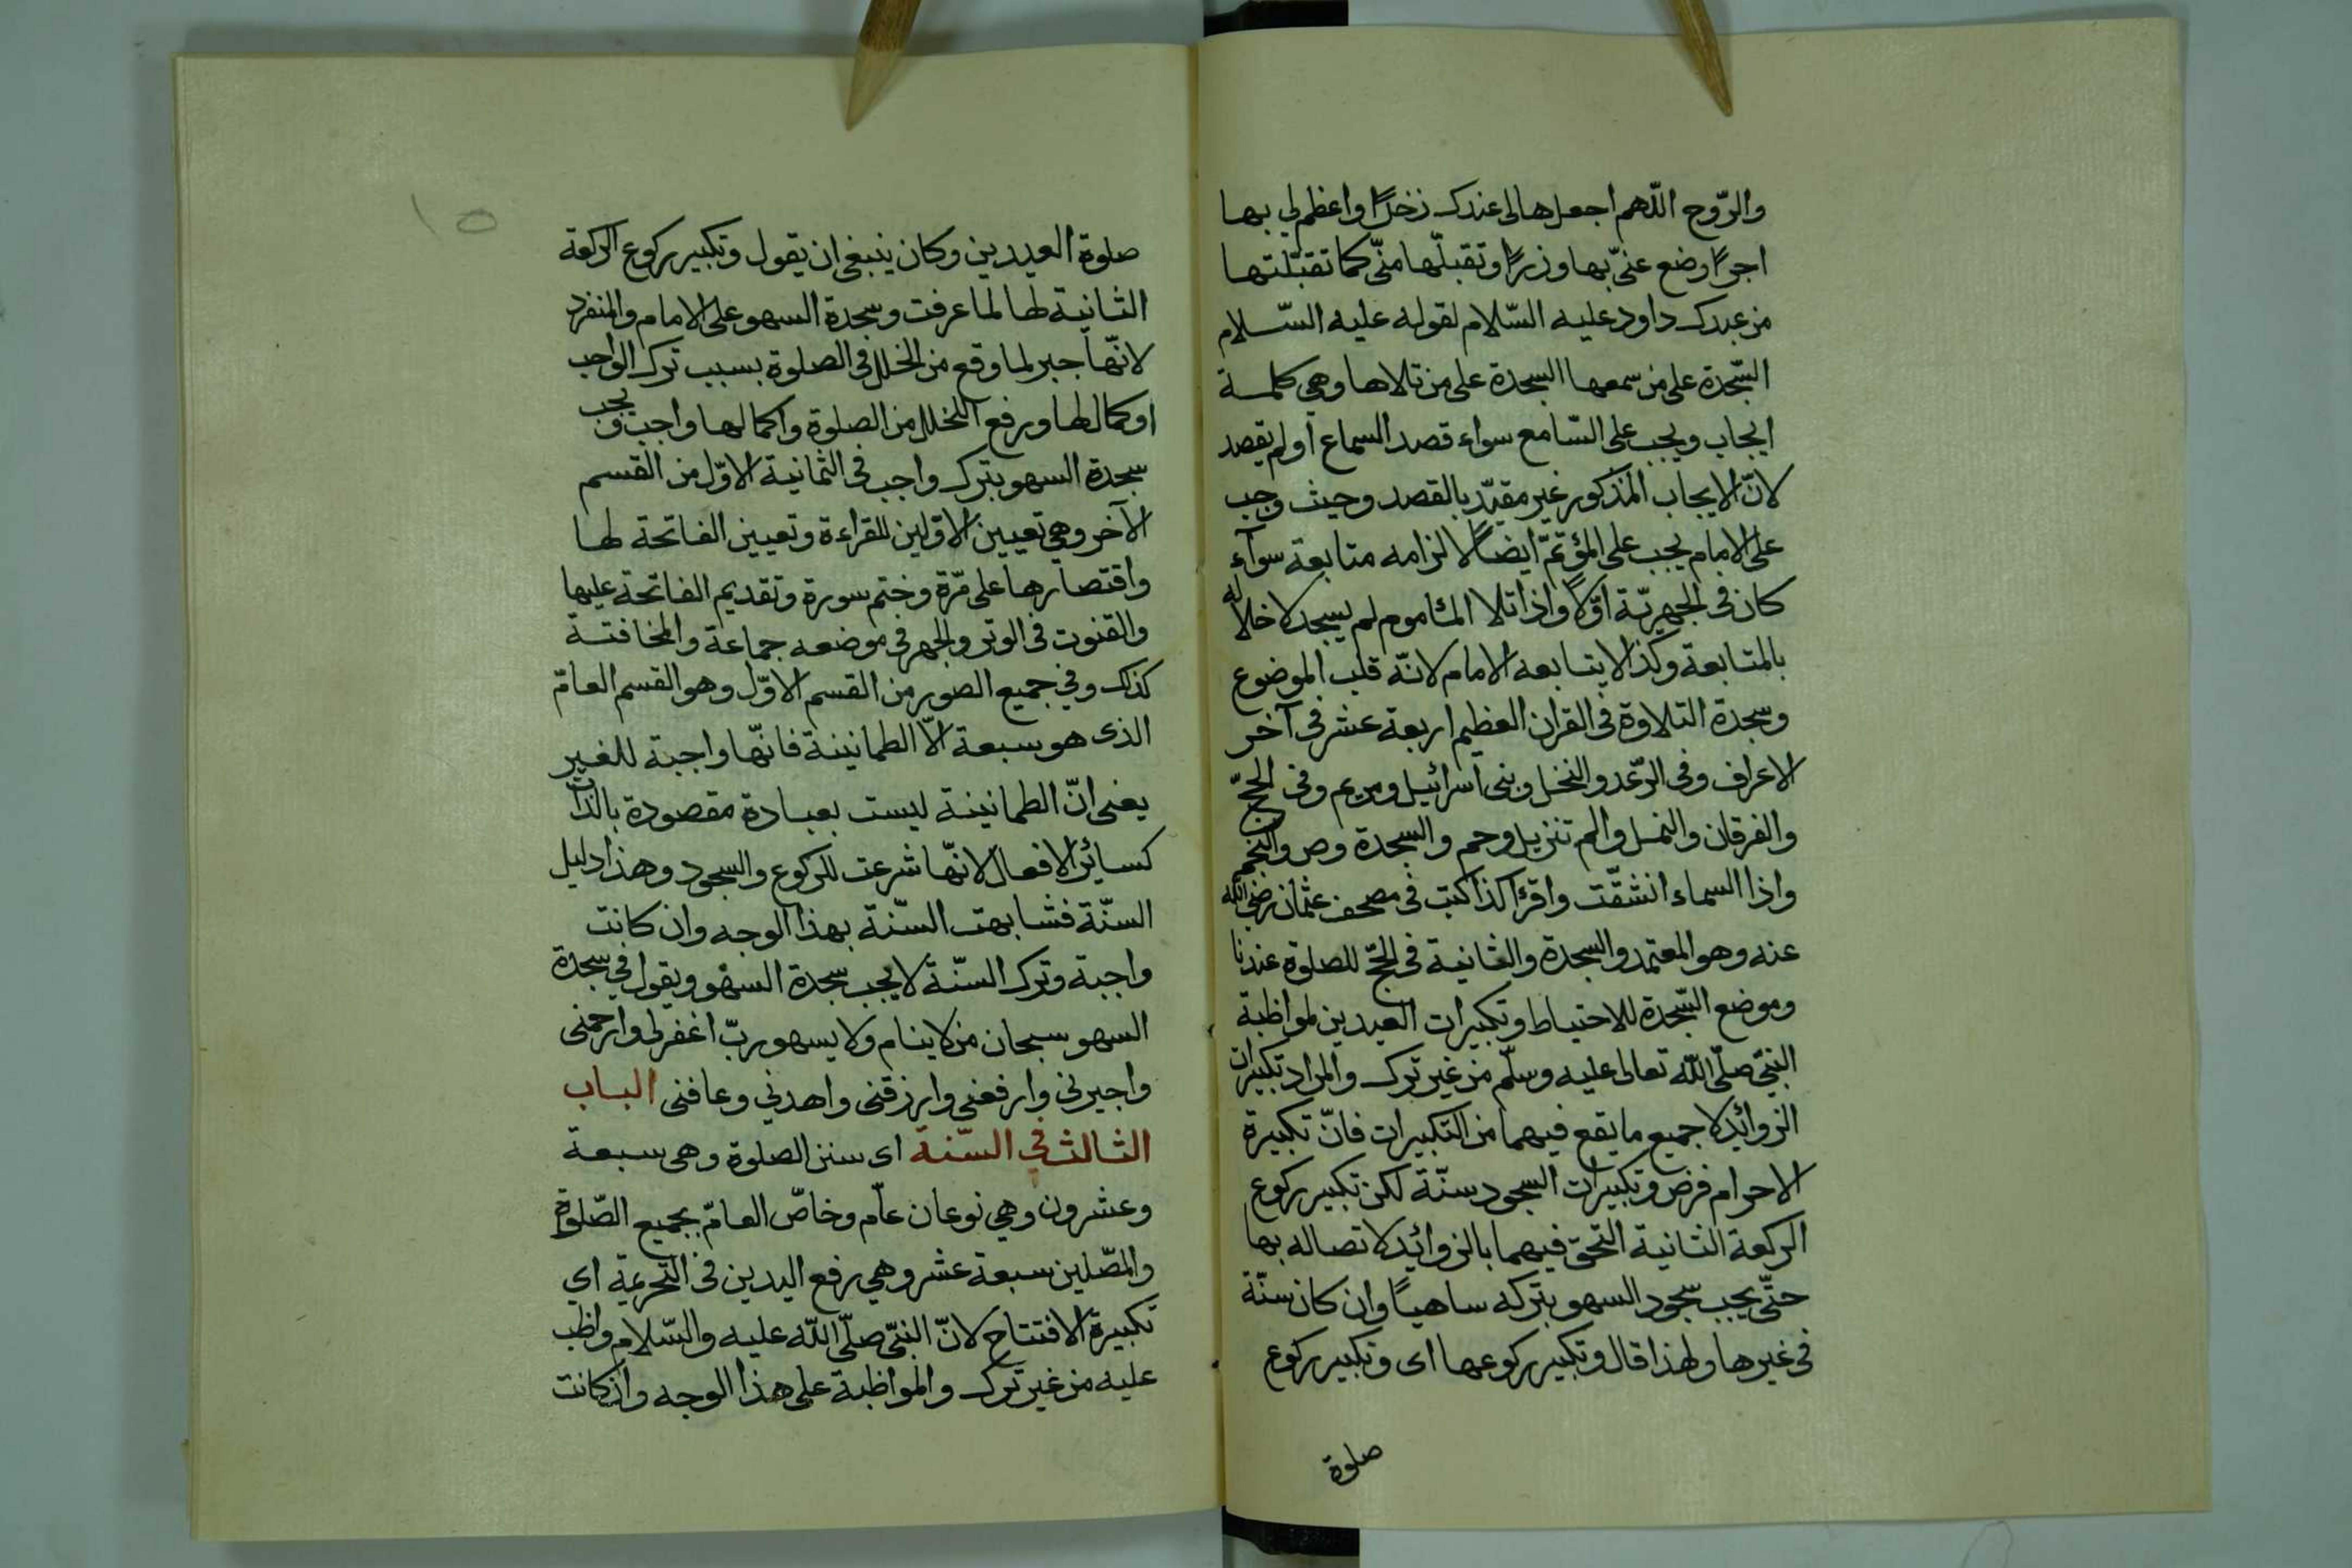 والرّوح اللّهم اجعلها لى عندك ذخرًا واعظم لي بها
اجرًا وضع عنّي بها وزرًا وتقبلّها منّي كما تقبّلتها
من عبدك داود عليه السّلام لقوله عليه السّلام
السّجدة على من سمعها السجدة على من تلاها وهي كلمة
ايجاب ويجب على السّامع سواء قصد السماع اولم يقصد
لانّ الايجاب المذكور غير مقيّد بالقصد وحيث وجب
على الامام يجب على المؤتمّ ايضاً لالزامه متابعة سوآء
كان فى الجهريّة اوّلاً واذا تلا المأموم لم يسجد لاخلاله
بالمتابعة وكذا لا يتابعه الامام لانّه قلب الموضوع
وسجدة التلاوة فى القران العظيم اربعة عشر فى آخر
الاعراف وفى الرّعد والنحل وبنى اسرائيل ومريم وفى الحجّ
والفرقان والنمل والم تنزيل وحم والسجدة وص والنّجم
واذا السماء انشقّت واقرء كذا كتب فى مصحف عثمان رضى الله
عنه وهو المعتمد والسجدة والثانية فى الحجّ للصلوة عندنا
وموضع السّجدة للاحتياط وتكبيرات العيدين لمواظبة
النبيّ صلّى اللّه تعالى عليه وسلّم من غير ترك والمراد تكبيرات
الزوائد لا جميع ما يقع فيهما من التكبيرات فانّ تكبيرة
الاحرام فرض وتكبيرات السجود سنّة لكن تكبير ركوع
الركعة الثانية التحق فيهما بالزوائد لاتصاله بها
حتّى يجب سجود السهو بتركه ساهيًا وان كان سنّة
فى غيرها ولهذا قال وتكبير ركوعها اى وتكبير ركوع
صلوة
١٥
صلوة العيدين وكان ينبغى ان يقول وتكبير ركوع الركعة
الثانية لها لما عرفت وسجدة السهو على الامام والمنفرد
لانّها جبر لما وقع من الخلل فى الصلوة بسبب ترك الواجب
اوكمالها ورفع الخلل من الصلوة واكمالها واجب ويجب
سجدة السهو بترك واجب فى الثمانية الاوّل من القسم
الآخر وهي تعيين الاوّلين للقراءة وتعيين الفاتحة لها
واقتصارها على مرّة وختم سورة وتقديم الفاتحة عليها
والقنوت فى الوتر والجهر فى موضعه جماعة والمخافتة
كذلك وفي جميع الصور من القسم الاوّل وهو القسم العامّ
الذى هو سبعة الاّ الطمانينة فانّها واجبة للغير
يعنى انّ الطمانينة ليست بعبادة مقصودة بالذات
كسائر الافعال لانّها شرعت للركوع والسجود وهذا دليل
السنّة فشابهت السّنة بهذا الوجه وان كانت
واجبة وترك السنّة لا يجب سجدة السهو ويقول في سجدة
السهو سبحان من لا ينام ولا يسهو ربّ اغفرلى وارحمنى
واجبرنى وارفعنى وارزقنى واهدني وعافنى الباب
الثالث في السّنة اى سنن الصلوة وهى سبعة
وعشرون وهي نوعان عامّ وخاصّ العامّ بجميع الصّلوة
والمصّلين سبعة عشر وهي رفع اليدين فى التّحريمة اي
تكبيرة الافتتاح لانّ النبيّ صلّى اللّه عليه والسّلام واظب
عليه من غير ترك والمواظبة على هذا الوجه وان كانت